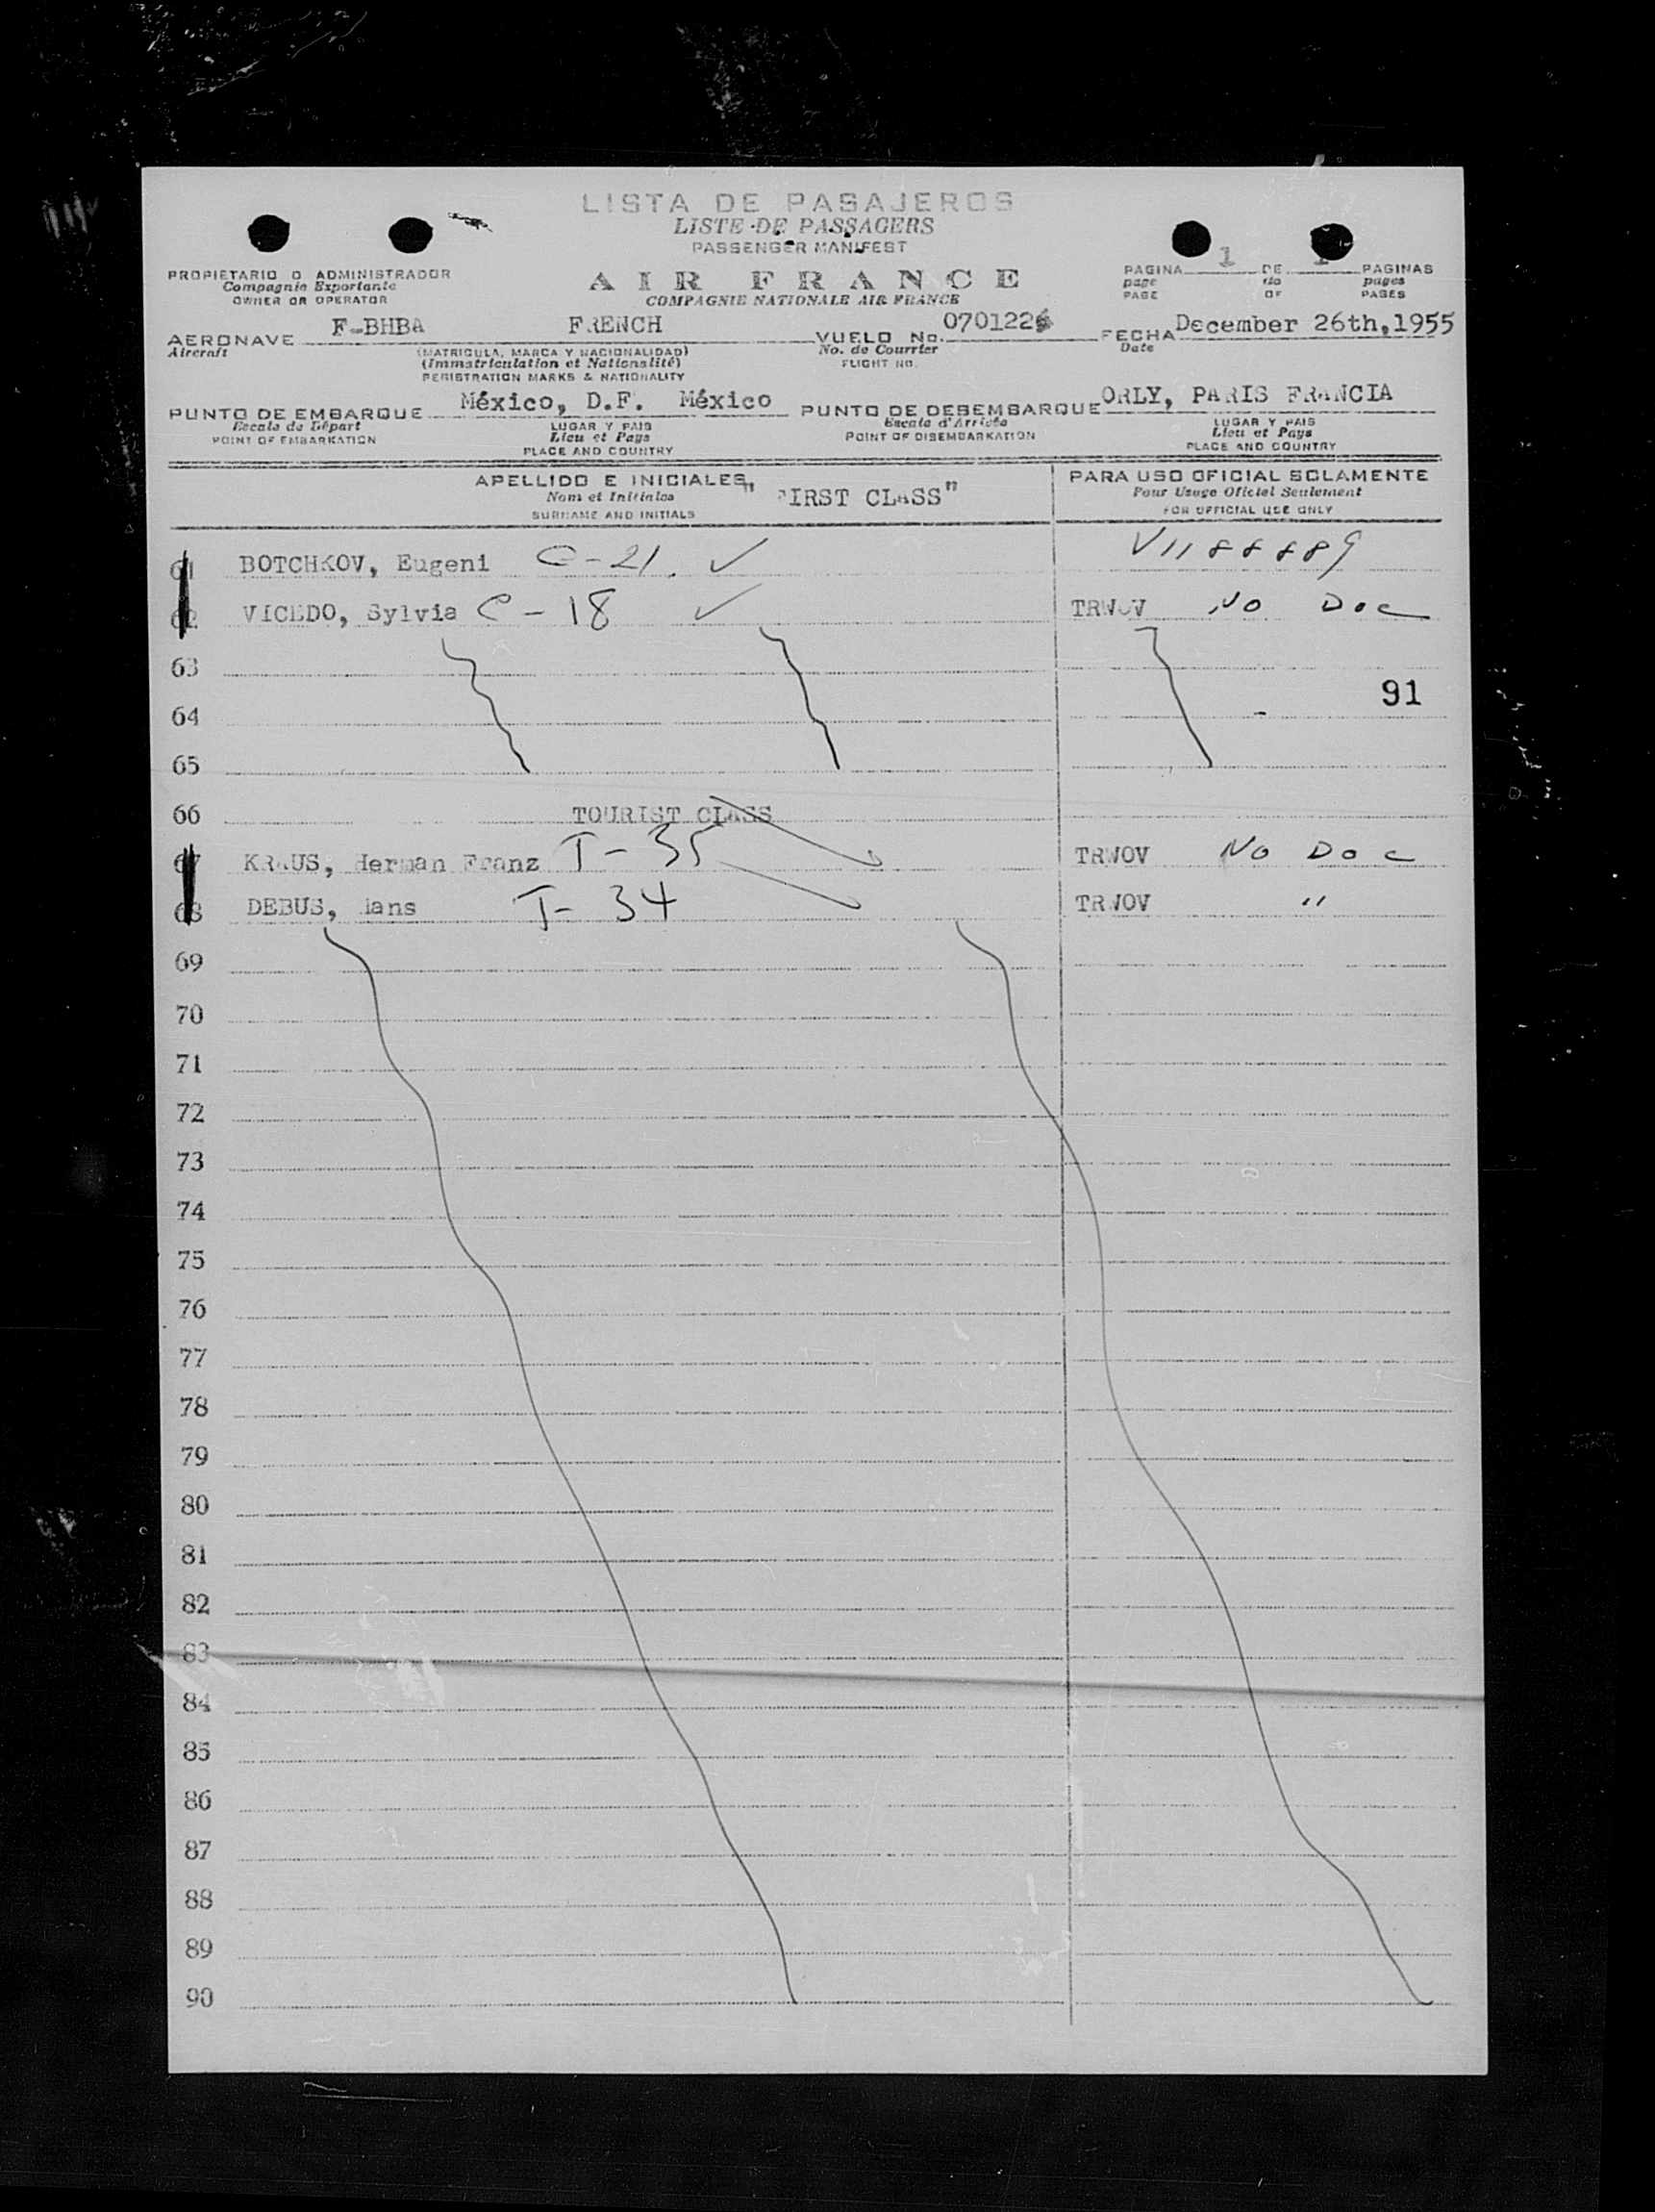 LISTA DE PASAJEROS
LISTE DE PASSAGERS
PASSENGER MANIFEST
PROPIETARIO O ADMINISTRADOR
Compagnie Exportante
OWNER OR OPERATOR
AIR FRANCE
COMPAGNIE NATIONALE AIR FRANCE
PAGINA 1 DE 1 PAGINAS
page de pages
PAGE OF PAGES
AERONAVE F-BHBA FRENCH VUELO No. 070122 FECHA December 26th, 1955
Aircraft (MATRICULA, MARCA Y NACIONALIDAD) No. de Courrier Date
(Immatriculation et Nationalité) FLIGHT NO.
REGISTRATION MARKS & NATIONALITY
PUNTO DE EMBARQUE México, D.F. México PUNTO DE DESEMBARQUE ORLY, PARIS FRANCIA
Escala de Départ LUGAR Y PAIS Escala d'Arrivée LUGAR Y PAIS
POINT OF EMBARKATION Lieu et Pays POINT OF DISEMBARKATION Lieu et Pays
PLACE AND COUNTRY PLACE AND COUNTRY
APELLIDO E INICIALES "FIRST CLASS" PARA USO OFICIAL SOLAMENTE
Nom et Initiales Pour Usage Oficiel Seulement
SURNAME AND INITIALS FOR OFFICIAL USE ONLY
61 BOTCHKOV, Eugeni C-21. ✓ V1188889
62 VICEDO, Sylvia C-18 ✓ TRWOV No Doc
63
91
64
65
66 TOURIST CLASS
67 KRAUS, Herman Franz T-35 TRWOV No Doc
68 DEBUS, Hans T-34 TRWOV "
69
70
71
72
73
74
75
76
77
78
79
80
81
82
83
84
85
86
87
88
89
90